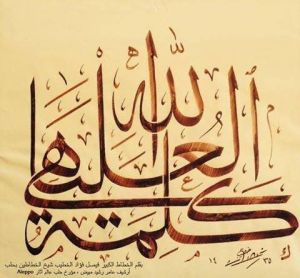 كلمة الله هي العليا
بقلم الخطاط الكبير فيصل فؤاد الخطيب شيخ الخطاطين بحلب
أرشيف عامر رشيد مبيض - مؤرخ حلب عالم آثار Aleppo